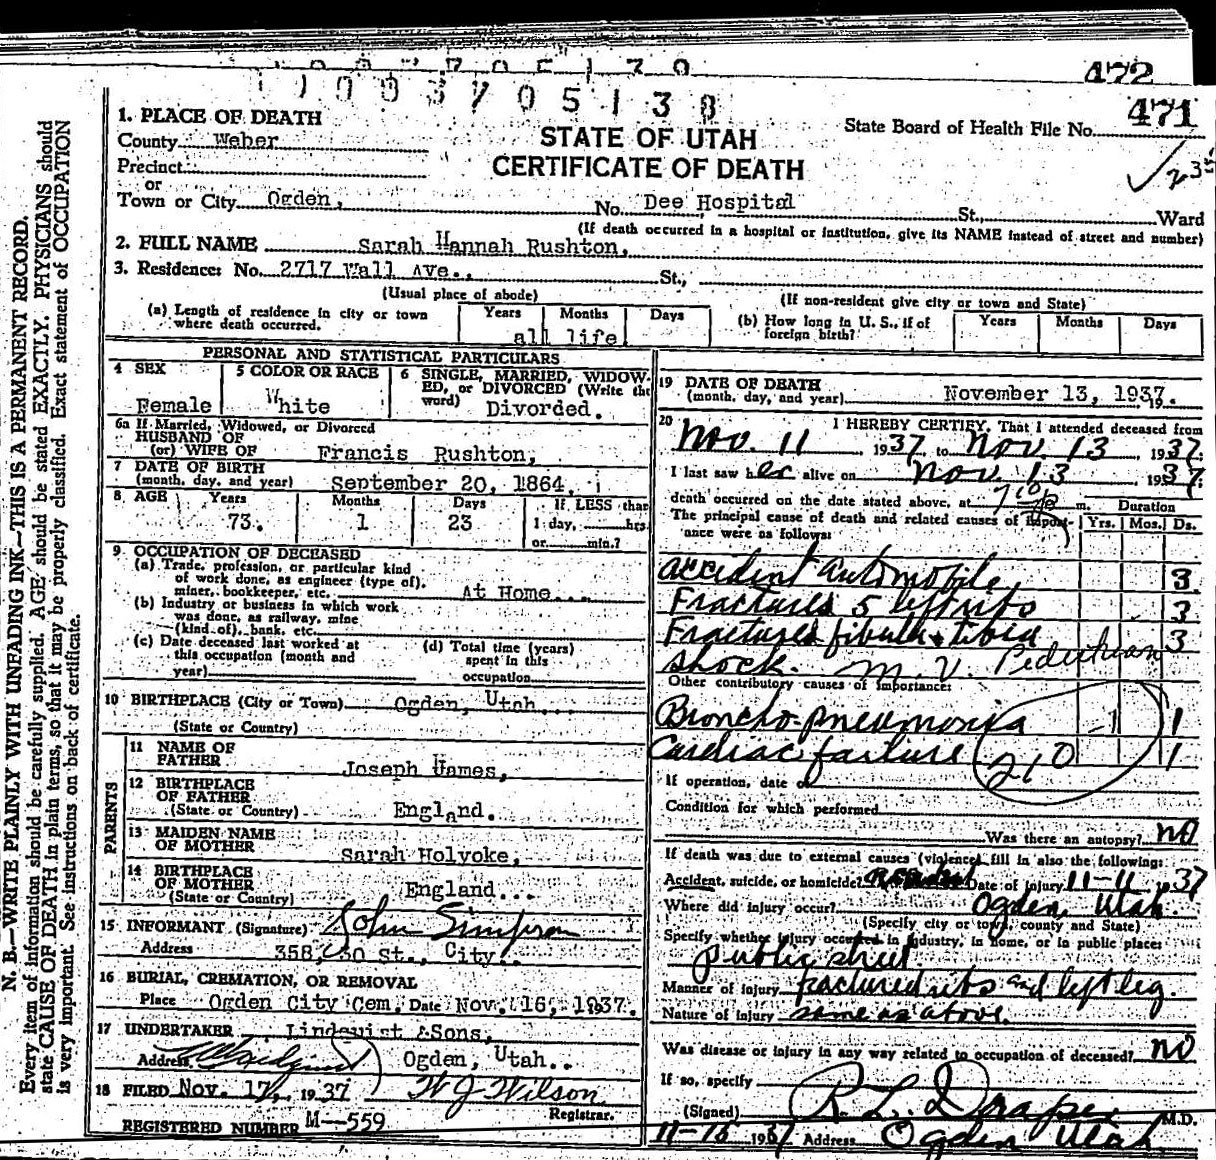 472
1003705138
471
STATE OF UTAH
CERTIFICATE OF DEATH
State Board of Health File No.
235
1. PLACE OF DEATH
County Weber
Precinct
or
Town or City Ogden, No. Dee Hospital St., Ward
(If death occurred in a hospital or institution, give its NAME instead of street and number)
2. FULL NAME Sarah Hannah Rushton,
3. Residence: No. 2717 Wall Ave., St.,
(Usual place of abode) (If non-resident give city or town and State)
(a) Length of residence in city or town where death occurred. Years Months Days
all life
(b) How long in U. S., if of foreign birth? Years Months Days
PERSONAL AND STATISTICAL PARTICULARS
4 SEX Female
5 COLOR OR RACE White
6 SINGLE, MARRIED, WIDOWED, or DIVORCED (Write the word) Divorded.
6a If Married, Widowed, or Divorced
HUSBAND OF
(or) WIFE OF Francis Rushton,
7 DATE OF BIRTH
(month, day, and year) September 20, 1864,
8 AGE Years Months Days If LESS than
73. 1 23 1 day, hrs.
or min.?
9 OCCUPATION OF DECEASED
(a) Trade, profession, or particular kind of work done, as engineer (type of), miner, bookkeeper, etc. At Home
(b) Industry or business in which work was done, as railway, mine (kind of), bank, etc.
(c) Date deceased last worked at this occupation (month and year)
(d) Total time (years) spent in this occupation
10 BIRTHPLACE (City or Town) Ogden, Utah
(State or Country)
PARENTS
11 NAME OF FATHER Joseph Hames,
12 BIRTHPLACE OF FATHER (State or Country) England.
13 MAIDEN NAME OF MOTHER Sarah Holyoke,
14 BIRTHPLACE OF MOTHER (State or Country) England
15 INFORMANT (Signature) John Simpson
Address 358, 30 St., City.
16 BURIAL, CREMATION, OR REMOVAL
Place Ogden City Cem. Date Nov. 16, 1937.
17 UNDERTAKER Lindquist &Sons,
Address Ogden, Utah..
18 FILED Nov. 17, 1937 W J Wilson
Registrar.
REGISTERED NUMBER M--559
19 DATE OF DEATH
(month, day, and year) November 13, 1937. 19
20 I HEREBY CERTIFY, That I attended deceased from
Nov. 11 1937, to Nov. 13 1937.
I last saw her alive on Nov. 13 1937
death occurred on the date stated above, at 710 P m. Duration
The principal cause of death and related causes of importance were as follows: Yrs. Mos. Ds.
accident automobile, 3
Fractures 5 left ribs 3
Fractured fibula & tibia 3
shock. M. V. Pedestrian
Other contributory causes of importance:
Broncho-pneumonia 1
Cardiac failure 1
210
If operation, date of
Condition for which performed
Was there an autopsy? no
If death was due to external causes (violence) fill in also the following:
Accident, suicide, or homicide? accident Date of injury 11-11 1937
Where did injury occur? Ogden, Utah.
(Specify city or town, county and State)
Specify whether injury occurred in industry, in home, or in public place:
public street.
Manner of injury fractured ribs and left leg.
Nature of injury same as above.
Was disease or injury in any way related to occupation of deceased? no
If so, specify
(Signed) R. L. Draper M.D.
1937 Address Ogden Utah
N. B.—WRITE PLAINLY WITH UNFADING INK—THIS IS A PERMANENT RECORD.
Every item of information should be carefully supplied. AGE should be stated EXACTLY. PHYSICIANS should
state CAUSE OF DEATH in plain terms, so that it may be properly classified. Exact statement of OCCUPATION
is very important. See instructions on back of certificate.